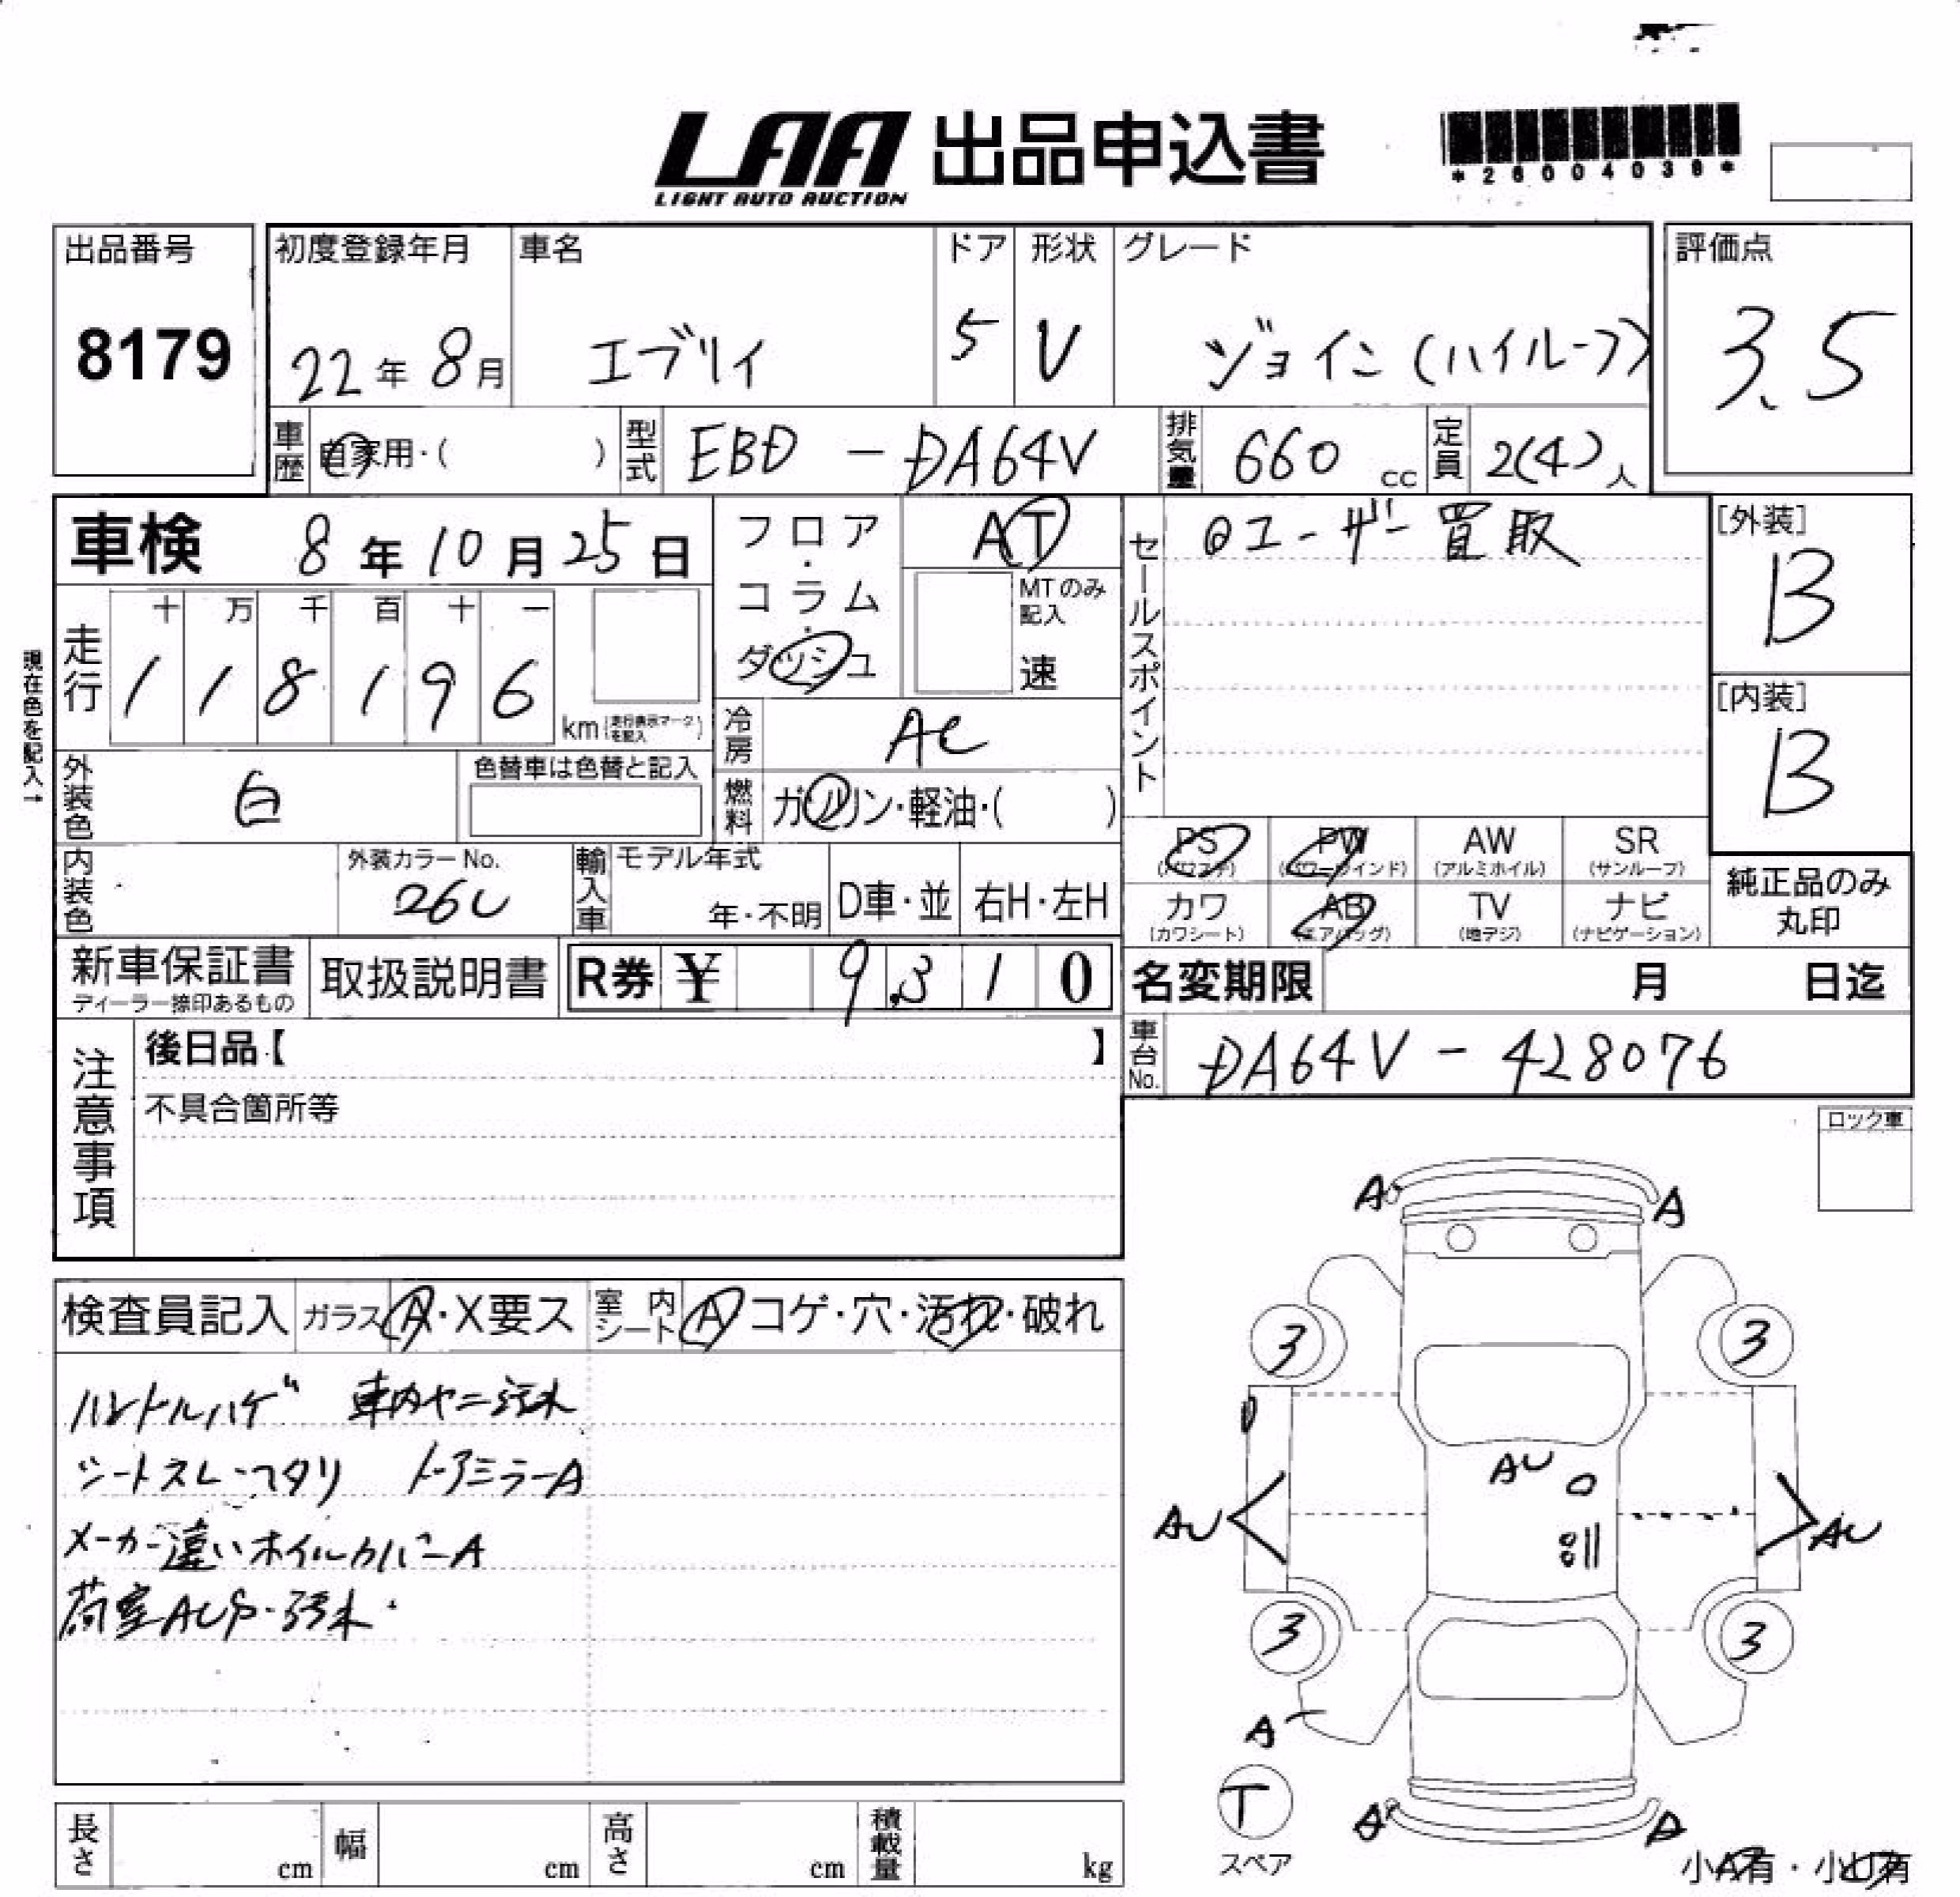 LAA 出品申込書
LIGHT AUTO AUCTION
*26004039*
出品番号
8179
初度登録年月
22年8月
車名
エブリイ
ドア
5
形状
V
グレード
ジョイン(ハイルーフ)
評価点
3.5
車歴
自家用・( )
型式
EBD-DA64V
排気量
660cc
定員
2(4)人
車検 8年10月25日
現在色を記入→
走行
十 万 千 百 十 一
1 1 8 1 9 6
km(走行表示マークを記入)
外装色
白
色替車は色替と記入
内装色
外装カラーNo.
26U
輸入車
モデル年式
年・不明
D車・並
右H・左H
フロア・コラム・ダッシュ
AT
MTのみ記入
速
冷房
AC
燃料
ガソリン・軽油・( )
セールスポイント
◎ユーザー買取
[外装]
B
[内装]
B
PS PW AW SR
(パワステ) (パワーウインド) (アルミホイル) (サンルーフ)
カワ AB TV ナビ
(カワシート) (エアバッグ) (地デジ) (ナビゲーション)
純正品のみ
丸印
新車保証書
ディーラー捺印あるもの
取扱説明書
R券 ¥ 9,310
名変期限 月 日迄
車台No.
DA64V-428076
注意事項
後日品【 】
不具合箇所等
ロック車
検査員記入
ガラス A・X要ス
室内シート A コゲ・穴・汚れ・破れ
ハンドルハゲ 車内ヤニ汚れ
シートスレ・ヘタリ ドアミラーA
メーカー違いホイルカバーA
荷室AUS・汚れ・
A A
3 3
AU
AU AU
3 3
A
T
スペア
A A
小A有・小U有
長さ cm
幅 cm
高さ cm
積載量 kg